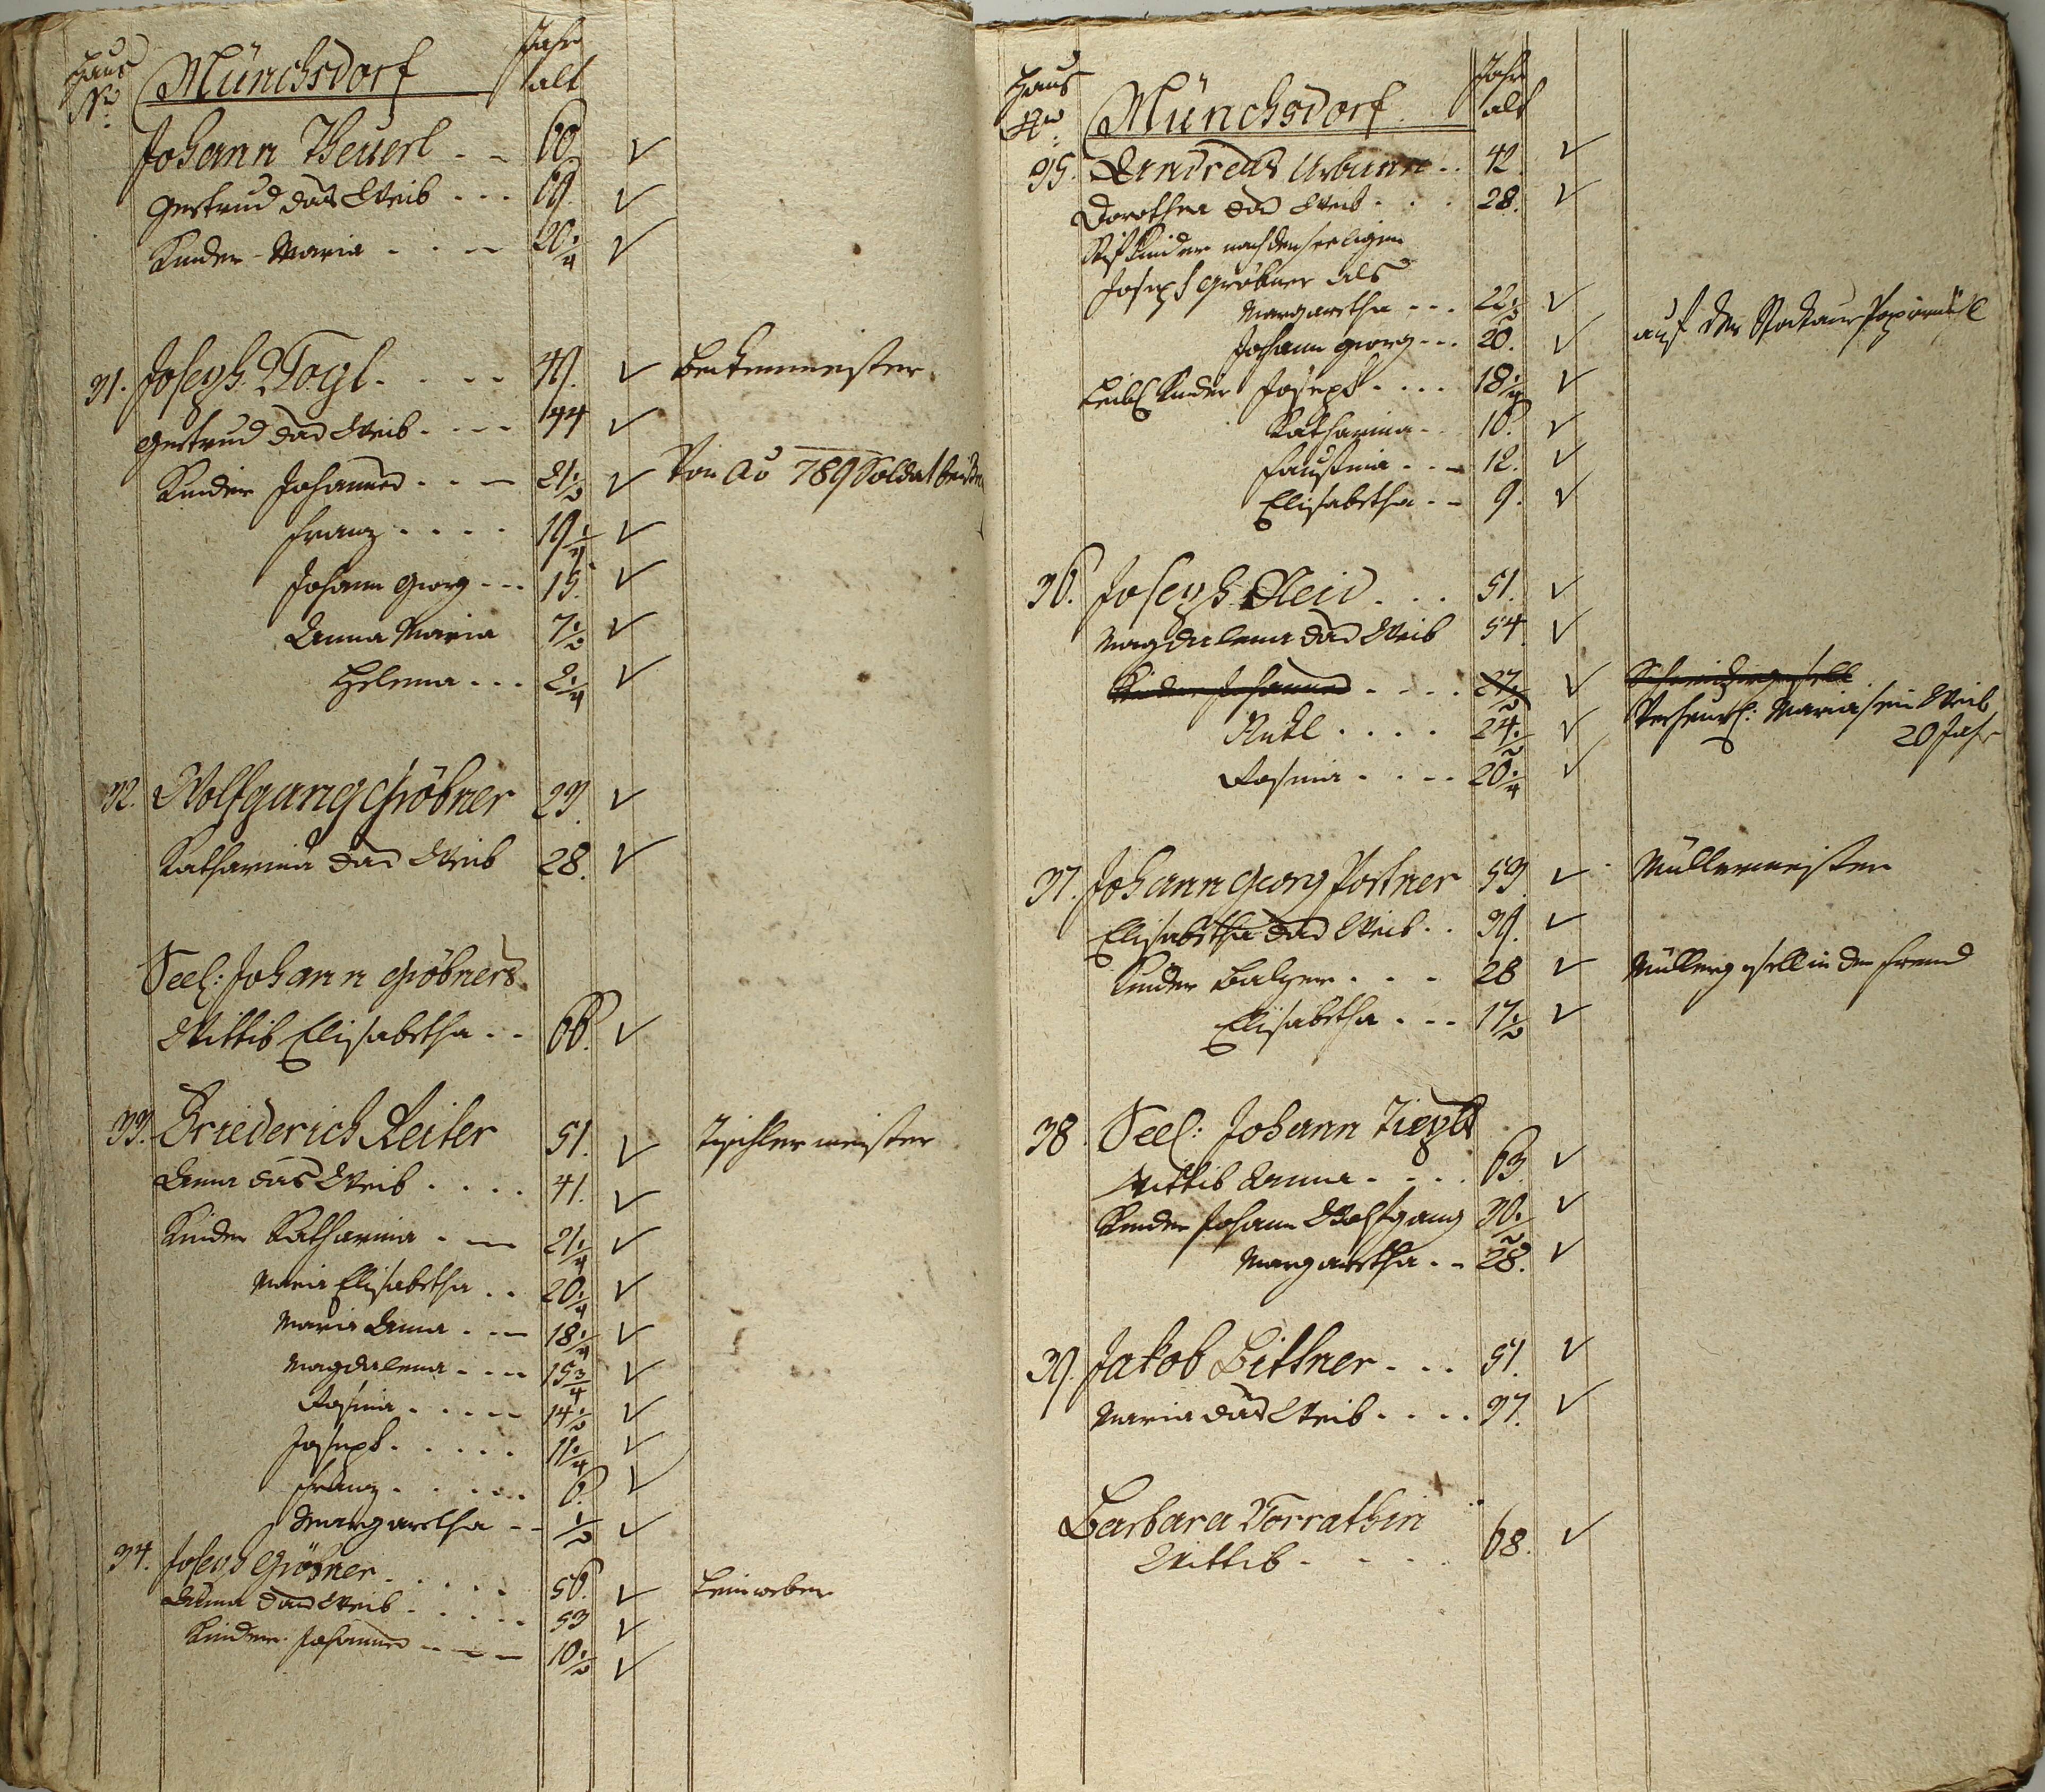 Haus
No.
Münchsdorf
Jahr
alt
Johann Beuerl - - 60
Gertrud das Weib - - - 69.
Kinder - Maria - - - 20 1/4
31. Joseph Vogl - - - - 49. Beckenmeister
Gertrud das Weib - - - - 44
Kinder Johannes - - - 21 1/2 Von Ao 789 Soldat
Franz - - - - 19 1/4
Johann Georg - - - 15.
Anna Maria 7 1/2
Helena - - - 2 1/4
32. Wolfgang Gröbner 29.
Katharina das Weib 28.
Seel: Johann Gröbners
Wittib Elisabetha - - 66.
33. Friederich Reiter 51. Tischlermeister
Anna das Weib - - - - 41.
Kinder Katharina - - 21 1/4
Maria Elisabetha - - 20 1/4
Maria Anna - - - 18 1/4
Magdalena - - - - 15 3/4
Rosina - - - - - 14 1/2
Joseph - - - - - 11 1/4
Franz - - - - - 6.
Margaretha - - 1/2
34. Joseph Gröbner - - - - - 56. Leinweber
Anna das Weib - - - - - 53
Kinder Johannes - - - - 10 1/2
Haus
No.
Münchsdorf
Jahr
alt
35. Andreas Urbann - - 42.
Dorothea das Weib - - - 28.
Stifkinder nach den seeligen
Joseph Gröbner als
Margaretha - - - 22 1/2
Johann Georg - - - 20. auf der Papirmühl
Leibl Kinder Joseph - - - - 18 1/4
Katharina - - 16.
Faustina - - - 12.
Elisabetha - - 9.
36. Joseph Neid - - - 51.
Magdalena das Weib 54.
Kinder Johannes - - - - 27 1/2
- - - - 24 1/2 Verheurath: Maria sein Weib
20 Jahr
Rosina - - - - 20 1/4
37. Johann Georg Portner 59 Müllermeister
Elisabetha das Weib - - 39.
Kinder Balzer - - - 28 Müllergsell in der Fremd
Elisabetha - - - 17 1/2
38 Seel: Johann
Wittib Anna - - - - 63.
Kinder Johann Wolfgang 30 1/2
Margaretha - - 28.
39. Jakob Bittner - - - 51.
Maria das Weib - - - - 37.
Barbara Vorrathin
Wittib - - - - 68.